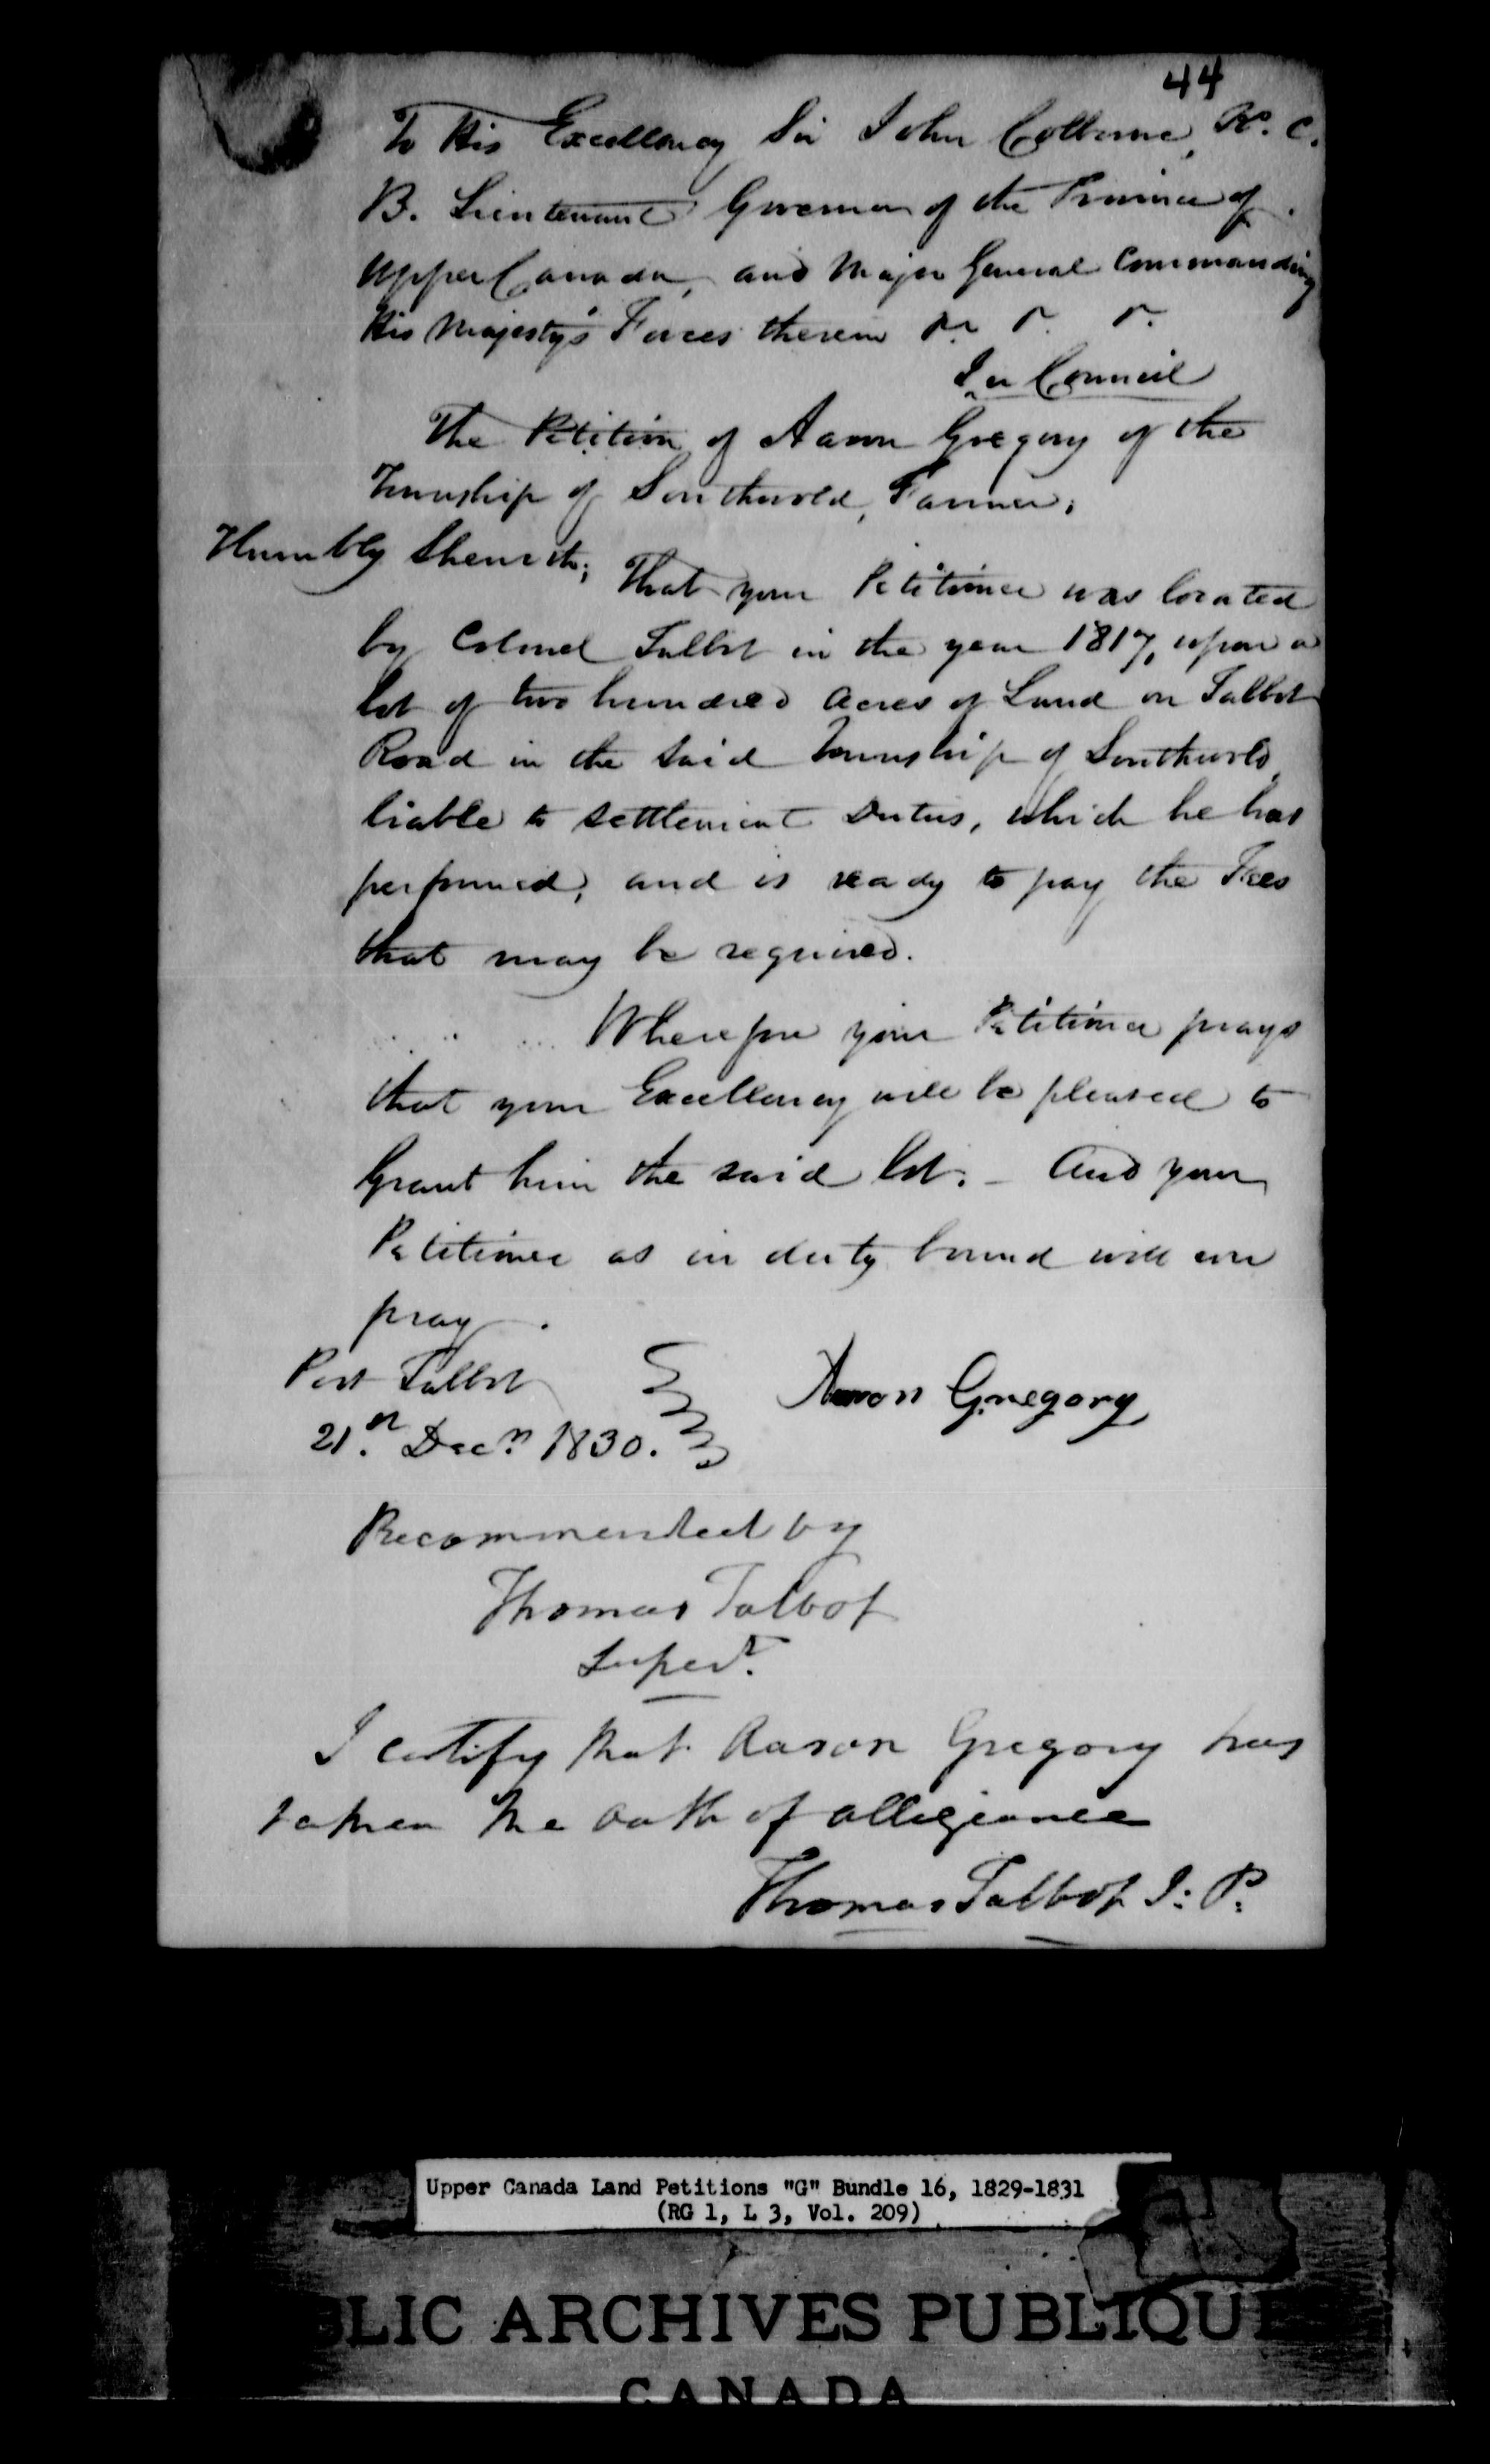 44
To His Excellency Sir John Colborne, K. C.
B. Lieutenant Governor of the Province of
Upper Canada, and Major General Commanding
His Majesty's Forces therein &c &c &c
In Council
The Petition of Aaron Gregory of the
Township of Southwold, Farmer;
Humbly Sheweth;
That your Petitioner was located
by Colonel Talbot in the year 1817, upon a
lot of two hundred Acres of Land on Talbot
Road in the said Township of Southwold
liable to settlement Duties, which he has
performed, and is ready to pay the Fees
that may be required.
Wherefore your Petitioner prays
that your Excellency will be pleased to
Grant him the said lot. - And your
Petitioner as in duty bound will ever
pray.
Port Talbot
21st Decr 1830.
Aaron Gregory
Recommended by
Thomas Talbot
Supert.
I certify that Aaron Gregory has
taken the oath of allegiance
Thomas Talbot J: P:
Upper Canada Land Petitions "G" Bundle 16, 1829-1831
(RG 1, L 3, Vol. 209)
BLIC ARCHIVES PUBLIQUE
CANADA